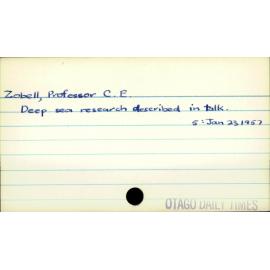 Zobell, Professor C. E.
Deep sea research described in talk.
5: Jan 23 1957
OTAGO DAILY TIMES